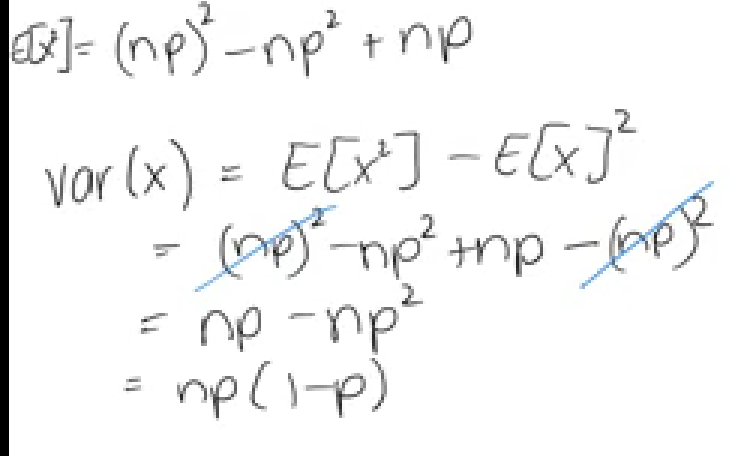 E[x²]= (np)² - np² + np
var(x) = E[x²] - E[x]²
= (np)² - np² + np - (np)²
= np - np²
= np(1-p)